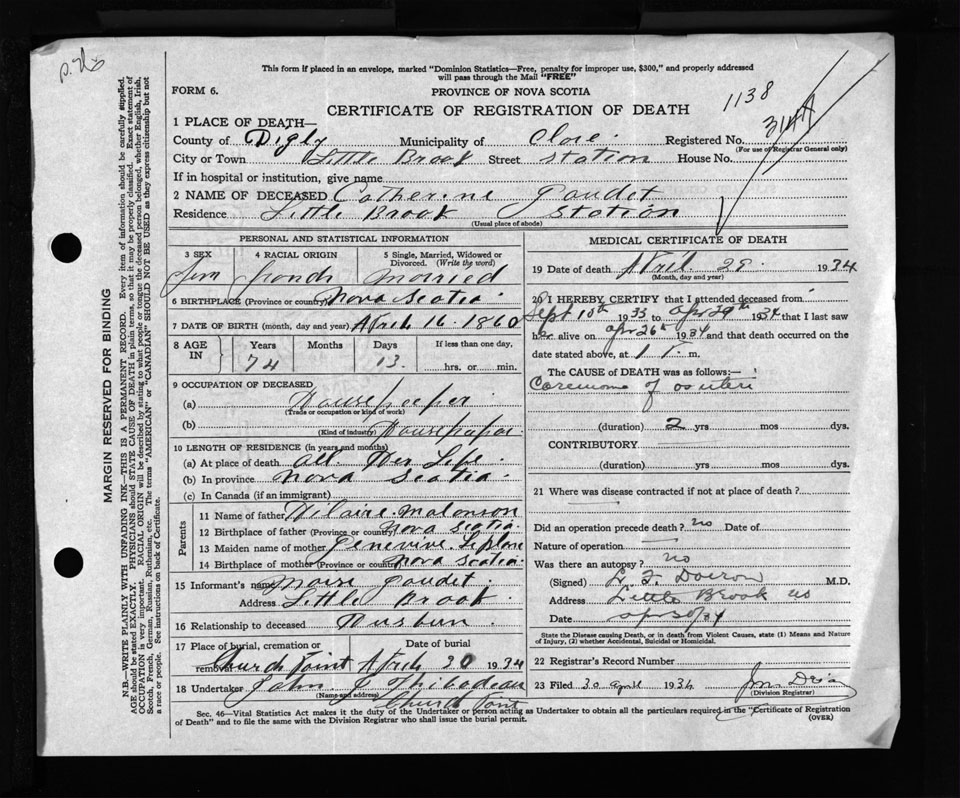 This form if placed in an envelope, marked "Dominion Statistics—Free, penalty for improper use, $300," and properly addressed
will pass through the Mail "FREE"
FORM 6.
PROVINCE OF NOVA SCOTIA
1138
CERTIFICATE OF REGISTRATION OF DEATH
1 PLACE OF DEATH—
County of Digby Municipality of Clare Registered No.
(For use of Registrar General only)
City or Town Little Brook Street Station House No.
If in hospital or institution, give name
2 NAME OF DECEASED Catherine Gaudet
Residence Little Brook Station
(Usual place of abode)
PERSONAL AND STATISTICAL INFORMATION
3 SEX 4 RACIAL ORIGIN 5 Single, Married, Widowed or Divorced. (Write the word)
Fem French Married
6 BIRTHPLACE (Province or country) Nova Scotia
7 DATE OF BIRTH (month, day and year) April 16 - 1860
8 AGE IN Years Months Days If less than one day,
74 13 hrs. or min.
9 OCCUPATION OF DECEASED
(a) Housekeeper
(Trade or occupation or kind of work)
(b)
(Kind of industry)
10 LENGTH OF RESIDENCE (in years and months)
(a) At place of death all Her Life
(b) In province Nova Scotia
(c) In Canada (if an immigrant)
Parents
11 Name of father Hilaire Malonson
12 Birthplace of father (Province or country) Nova Scotia
13 Maiden name of mother Genevive Leblanc
14 Birthplace of mother (Province or country) Nova Scotia
15 Informant's name Gaudet
Address Little Brook
16 Relationship to deceased
17 Place of burial, cremation or removal Date of burial
Church Point April 30 1934
18 Undertaker John J Thibodeau
(Name and address)
Church Point
MEDICAL CERTIFICATE OF DEATH
19 Date of death April 29 1934
(Month, day and year)
20 I HEREBY CERTIFY that I attended deceased from
Sept 10th 1933 to apr 29th 1934 that I last saw
her alive on apr 26th 1934 and that death occurred on the
date stated above, at 1 P. m.
The CAUSE of DEATH was as follows:—
of os uteri
(duration) 2 yrs mos dys.
CONTRIBUTORY
(duration) yrs mos dys.
21 Where was disease contracted if not at place of death?
Did an operation precede death? no Date of
Nature of operation
Was there an autopsy? no
(Signed) M.D.
Address Little Brook NS
Date apr 30/34
State the Disease causing Death, or in death from Violent Causes, state (1) Means and Nature
of Injury, (2) whether Accidental, Suicidal or Homicidal.
22 Registrar's Record Number
23 Filed 30 april 1934
(Division Registrar)
Sec. 46—Vital Statistics Act makes it the duty of the Undertaker or person acting as Undertaker to obtain all the particulars required in the "Certificate of Registration
of Death" and to file the same with the Division Registrar who shall issue the burial permit.
(OVER)
MARGIN RESERVED FOR BINDING
N.B.—WRITE PLAINLY WITH UNFADING INK—THIS IS A PERMANENT RECORD. Every item of information should be carefully supplied.
AGE should be stated EXACTLY. PHYSICIANS should STATE CAUSE OF DEATH in plain terms, so that it may be properly classified. Exact statement of
OCCUPATION is very important. RACIAL ORIGIN will be described by stating to what people or tongue the deceased person belonged, whether English, Irish,
Scotch, French, German, Russian, Ruthenian, etc. The terms "AMERICAN" or "CANADIAN" SHOULD NOT BE USED as they express citizenship but not
a race or people. See instructions on back of Certificate.